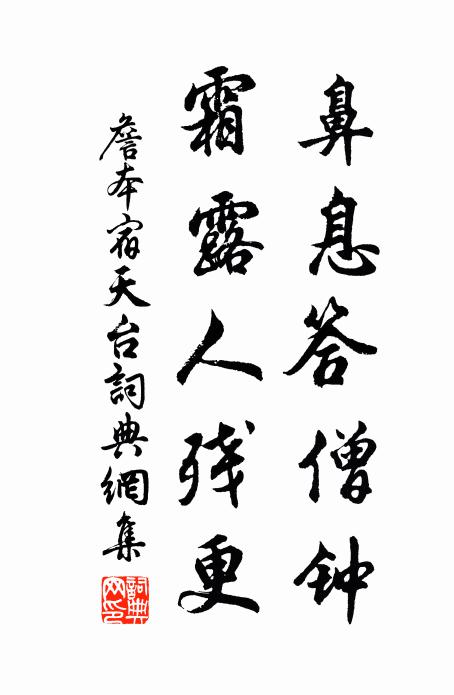 鼻息答僧钟
霜露人残更
詹本宿天台詞典網集
詞典
网印